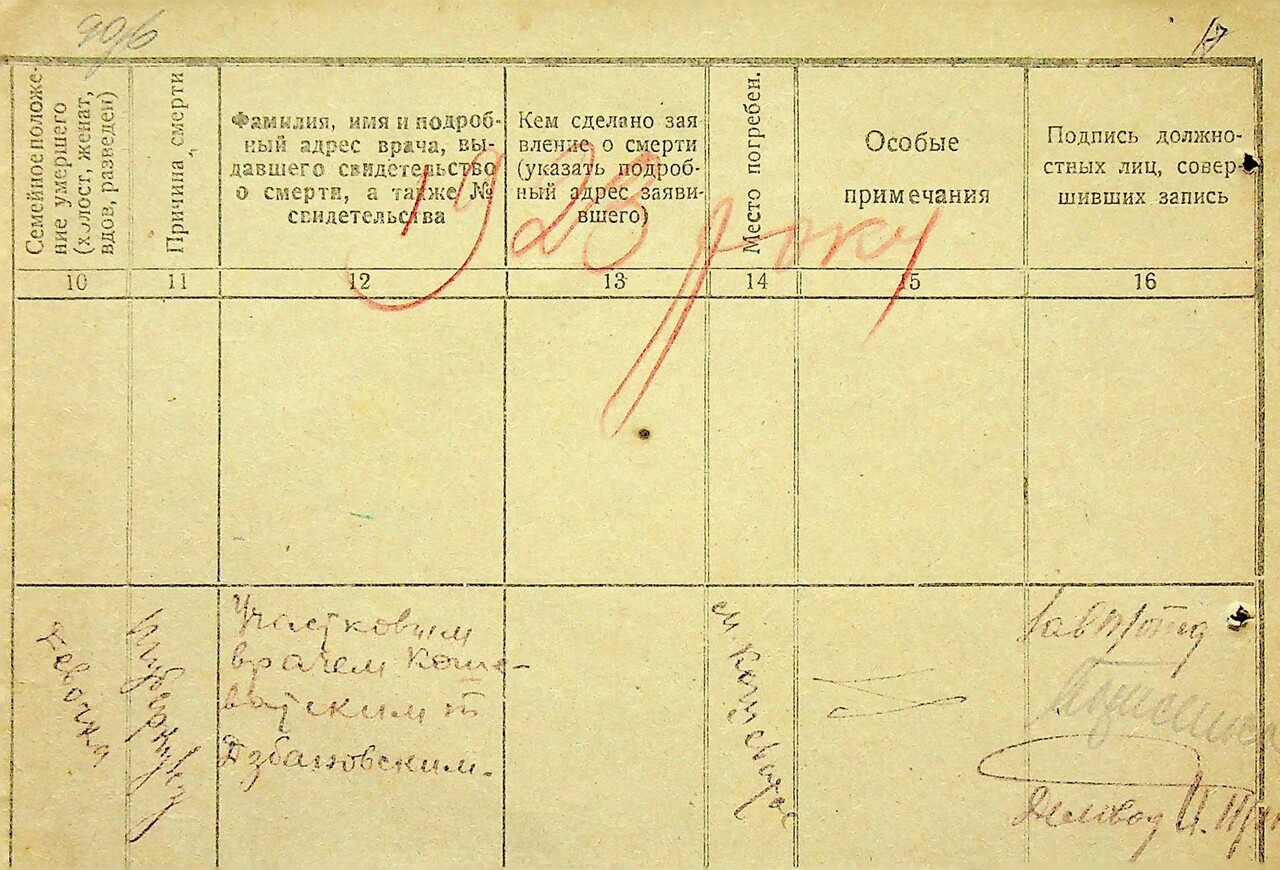 99б
17
Семейное положе-
ние умершего
(холост, женат,
вдов, разведен)
Причина смерти
Фамилия, имя и подроб-
ный адрес врача, вы-
давшего свидетельство
о смерти, а также №
свидетельства
Кем сделано зая
вление о смерти
(указать подроб-
ный адрес заяви-
вшего)
Место погребен.
Особые
примечания
Подпись должно-
стных лиц, совер-
шивших запись
1923 року
10 11 12 13 14 15 16
девочка
туберкулез
Участковим
врачем Коше-
ватским
Дзбановским.
Завп/отд
Делвод